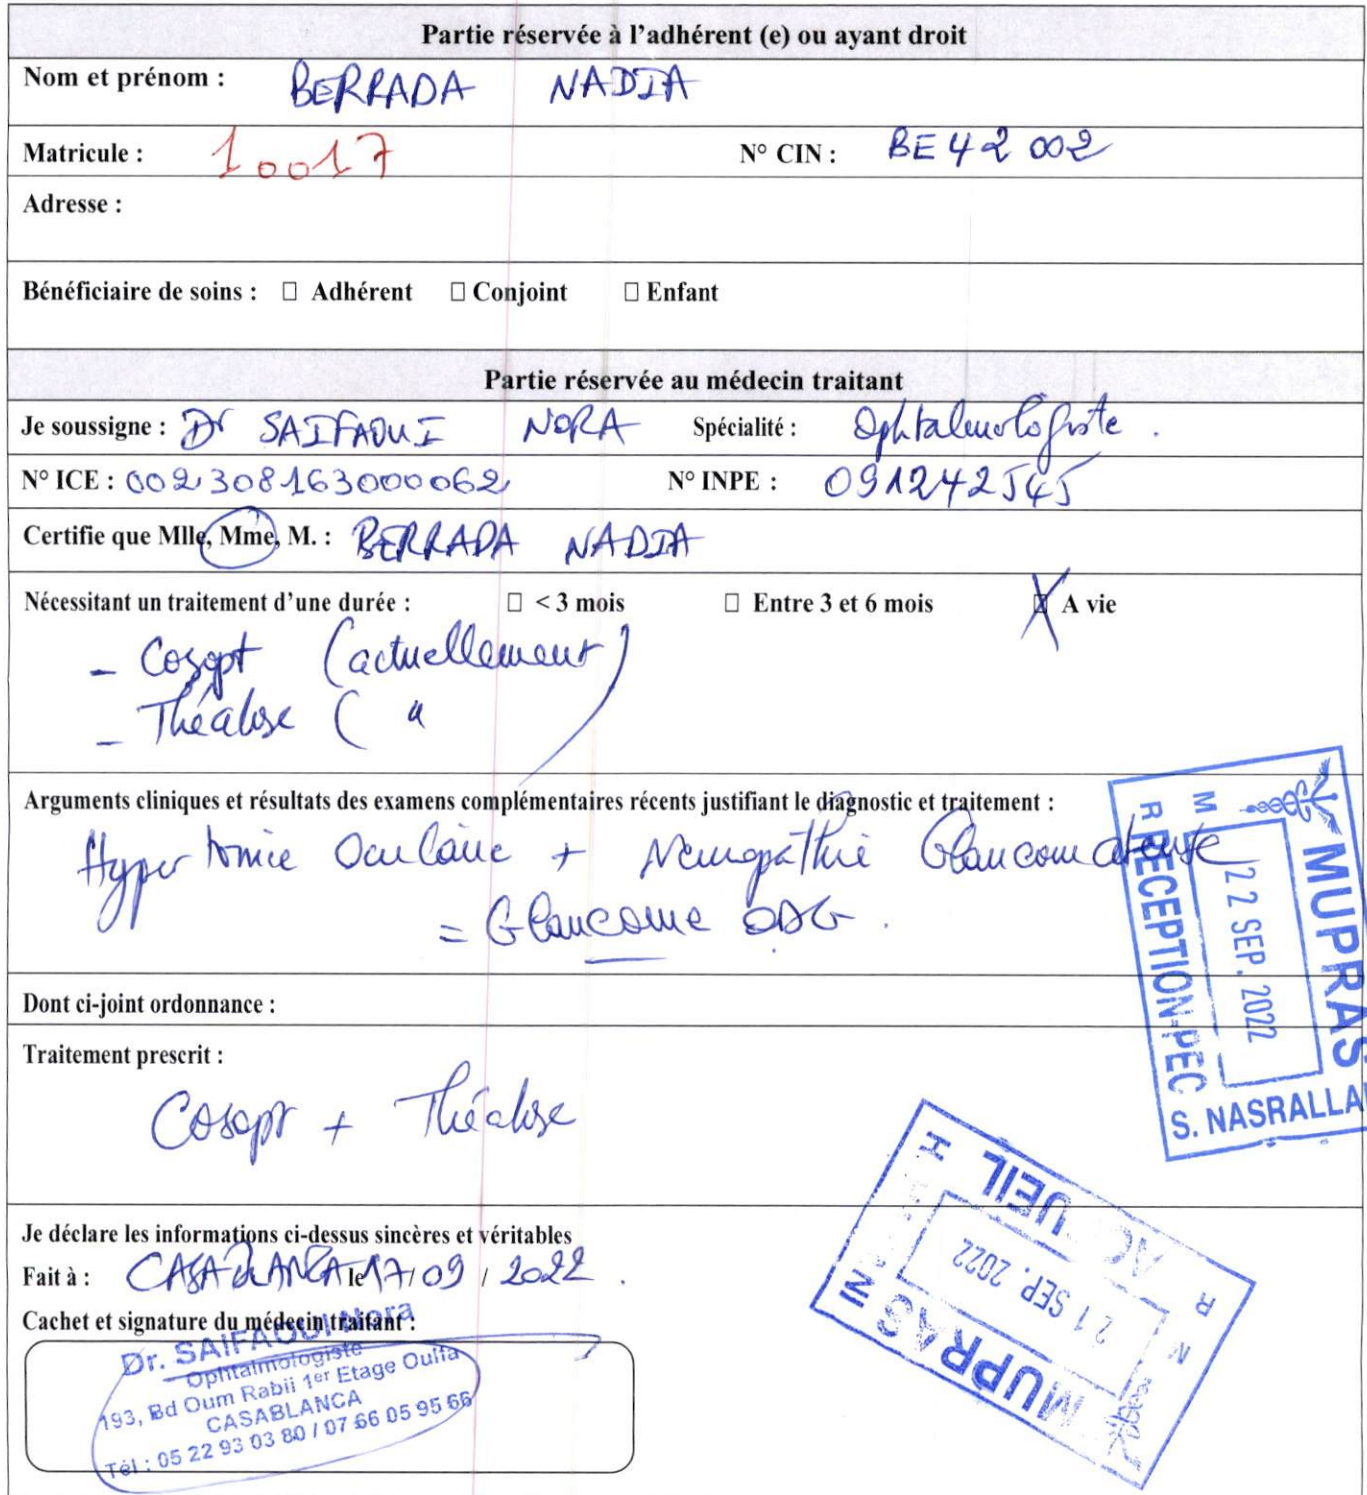 Partie réservée à l'adhérent (e) ou ayant droit
Nom et prénom : BERRADA NADIA
Matricule : 10017 N° CIN : BE42002
Adresse :
Bénéficiaire de soins : □ Adhérent □ Conjoint □ Enfant
Partie réservée au médecin traitant
Je soussigne : Dr SAIFAOUI NORA Spécialité : Ophtalmologiste.
N° ICE : 002308163000062 N° INPE : 091242545
Certifie que Mlle, Mme, M. : BERRADA NADIA
Nécessitant un traitement d'une durée : □ < 3 mois □ Entre 3 et 6 mois ☒ A vie
- Cosopt (actuellement)
- Théalose ( " )
Arguments cliniques et résultats des examens complémentaires récents justifiant le diagnostic et traitement :
Hypertonie Oculaire + Neuropathie Glaucomateuse
= Glaucome ODG.
Dont ci-joint ordonnance :
Traitement prescrit :
Cosopt + Théalose
Je déclare les informations ci-dessus sincères et véritables
Fait à : CASABLANCA le 17/09/2022.
Cachet et signature du médecin traitant :
Dr. SAIFAOUI Nora
Ophtalmologiste
193, Bd Oum Rabii 1er Etage Oulfa
CASABLANCA
Tél : 05 22 93 03 80 / 07 66 05 95 66
MUPRAS
22 SEP. 2022
RECEPTION-PEC
S. NASRALLAH
MUPRAS
21 SEP. 2022
ACCUEIL